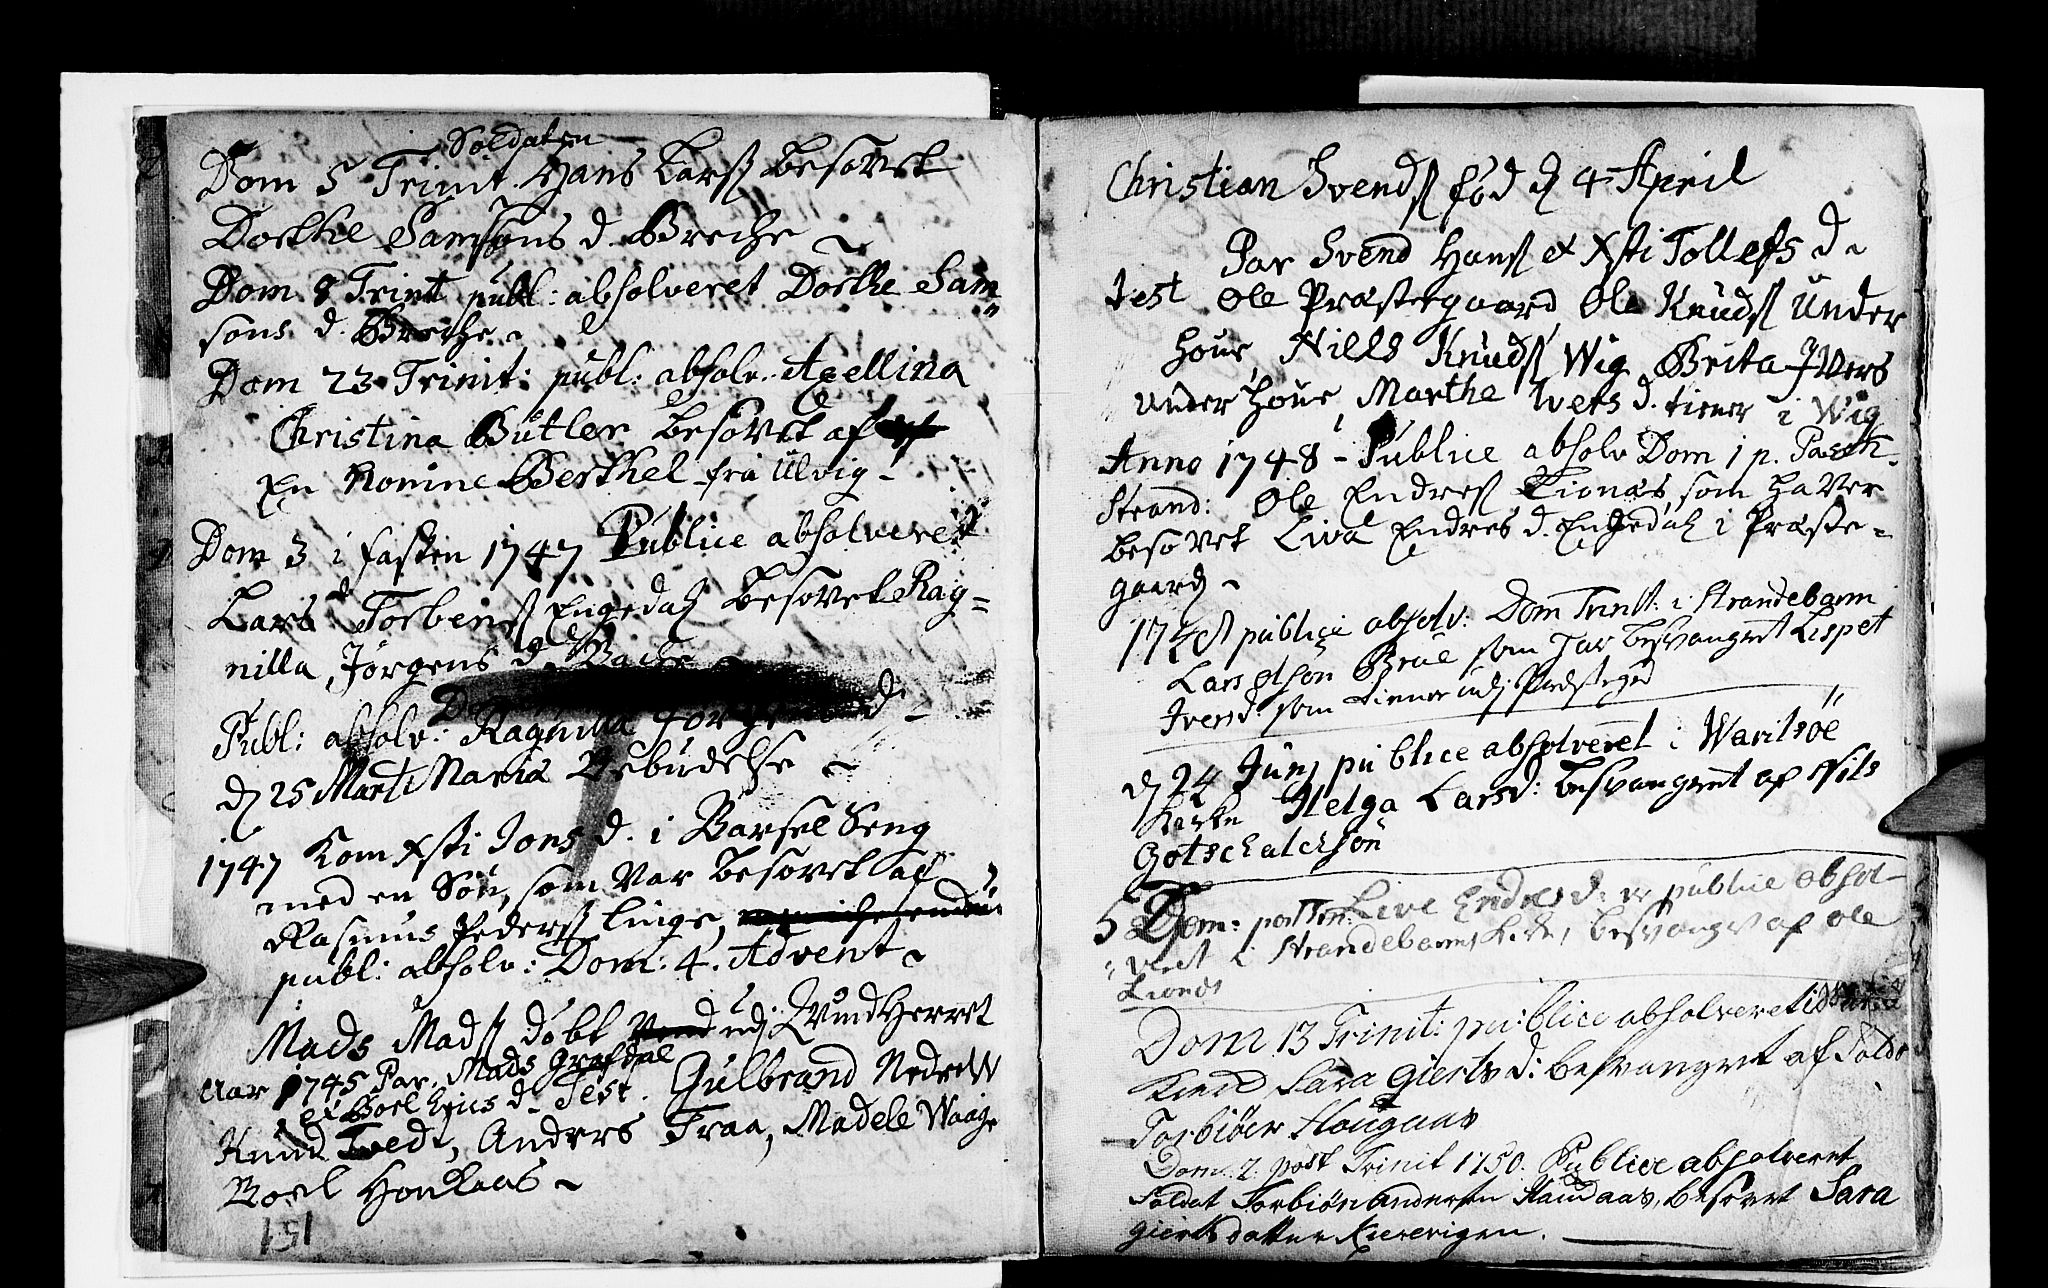 Soldaten
Dom 5 Trinit. Hans Larsß besovet
Dorthe Samsons d. Breche
Dom 8 Trinit publ: absolveret Dorthe Sam
sons d. Breche
Dom 23 Trinit: publ: absolv. Axellina
Christina Butler besovet af
En Nomine Berthel fra Ulvig
Dom 3 i fasten 1747 Publice absolveret
Lars Torbensß Engedal besovet Rag=
nilla, Jørgens d.
Publ: absolv: Ragnilla Jørgens d
d 25 Marti Maria Bebudelse
1747 Kom Xsti Jons d. i Barsel Seng
med en Søn, som var besovet af
Rasmus Pedersß Linge,
publ: absolv: Dom: 4. Advent
Mads Madsß døbt udj Qvindherret
Aar 1745 Par. Mads Grafdal
et Boel Eriks d. Test. Gulbrand Nedre
Knud Tvedt, Anders Traa, Madele Waage
Boel Honkaas
151
Christian Svendsß fød d 4 April
Par Svend Hansß et Xsti Tollefs d
Test Ole Præstegaard Ole Knudsß Under
houe, Nills Knudsß Wig Brita Ivers
Underhoue, Marthe d. tiener i Wig
Anno 1748 - Publice absolv Dom 1 p. Pasch.
Strand: Ole Endresß Lionæs, som haver
besovet Liva Endres d. Engedal i Præste=
gaard
1748 publice absolv: Dom Trinit: i Strandebarm
Lars Olsøn Brue som har besvangret Lispet
Ivers d: som tiener udj Prestegrd
d 24 Junj publice absolveret i Waritsöe
Kirke Helga Lars d: besvangret af Nils
Gotschalchsøn
5 Dom: post Trin: Live Endres d: publice absol-
veret i Strandebarms Kirke, besvangr af Ole
Lionæs
Dom 13 Trinit: publice absolveret i
Sara Gierts d: besvangret af Sold
Torbiöer Haugaas
Dom. 2. post Trinit 1750. Publice absolveret
Soldat Torbiön Andersen Haudaas, besovet Sara
Giertsdatter